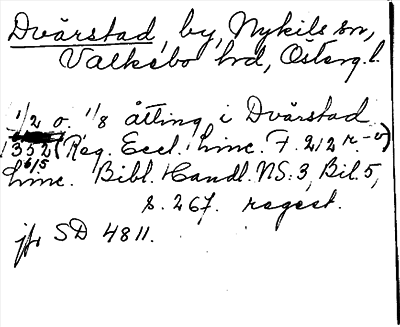 Dvärstad, by, Nykils sn,
Valkebo hd, Österg. l.
1/2 o. 1/8 åtting i Dvärstad
1352 6/5 (Reg. Eccl. Linc. F. 212 r-v)
Linc. Bibl. Handl. NS: 3, Bil. 5,
s. 267. regest.
jfr SD 4811.